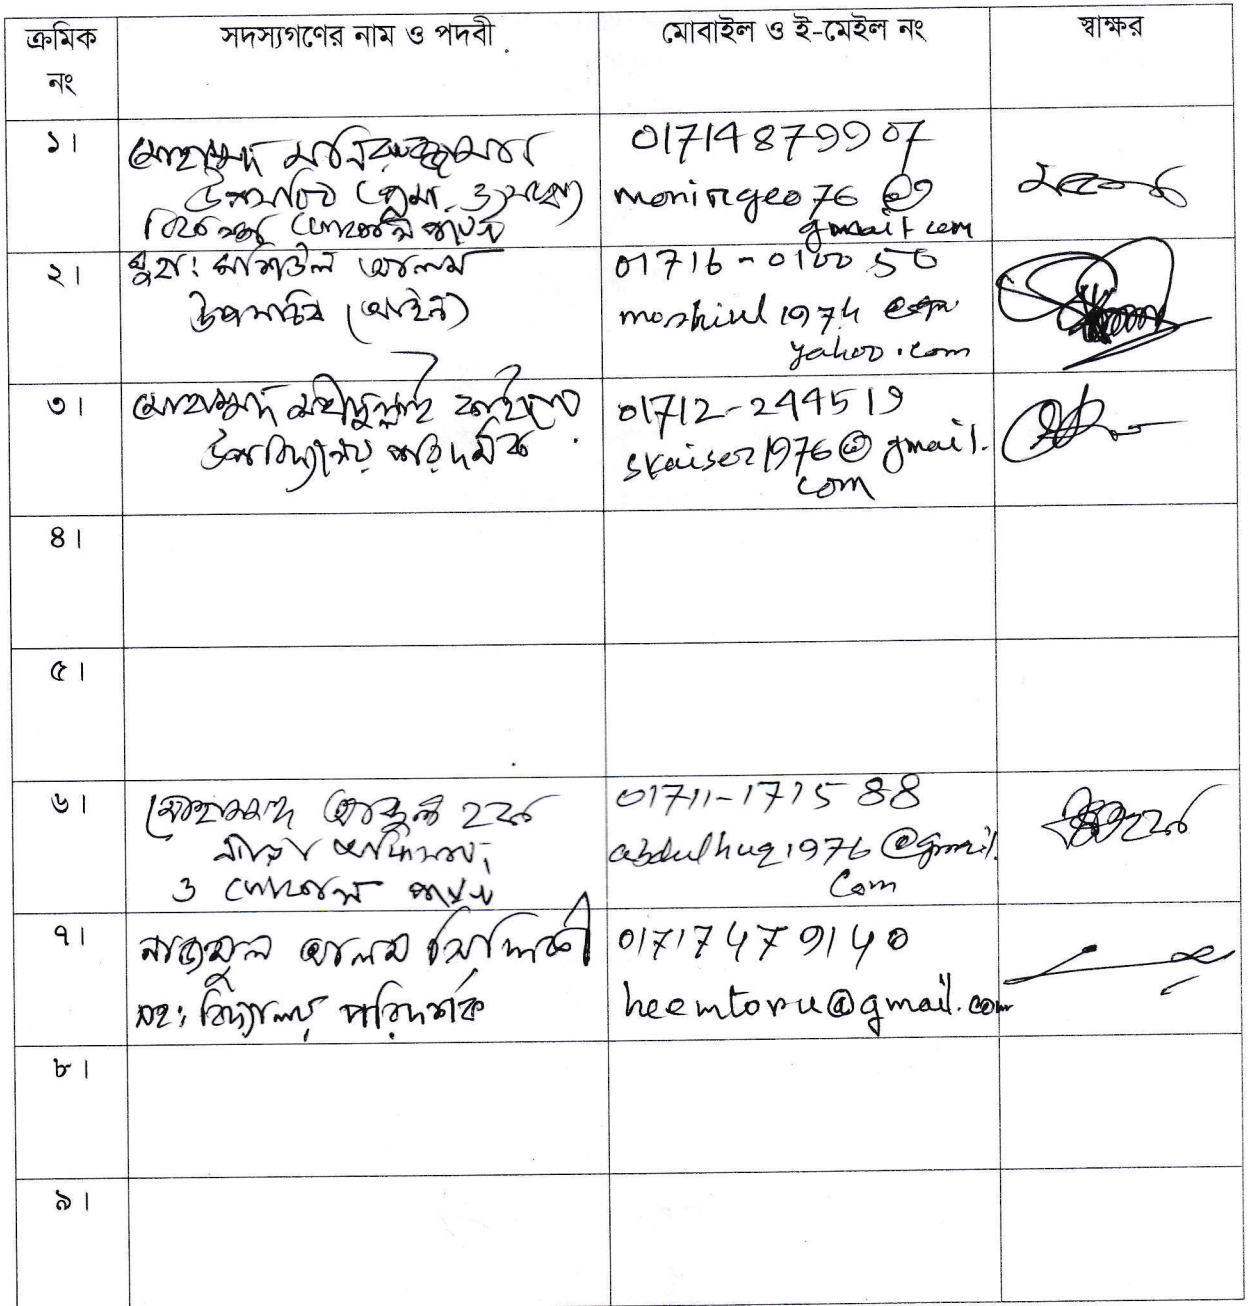 ক্রমিক নং
সদস্যগণের নাম ও পদবী
মোবাইল ও ই-মেইল নং
স্বাক্ষর
১।
মোহাম্মদ মনিরুজ্জামান
উপসচিব
01714879907
monirgeo76@
gmail.com
২।
মুহাঃ মশিউল আলম
উপসচিব (আইন)
01716-010050
moshiul1974
yahoo.com
৩।
মোহাম্মদ
উপবিদ্যালয় পরিদর্শক
01712-244519
skaiser1976@gmail.
com
৪।
৫।
৬।
মোহাম্মদ আব্দুল হক
অফিসার,
ও
01711-171588
abdulhuq1976@gmail.
com
৭।
নাজমুল আলম সিদ্দিকী
সহঃ বিদ্যালয় পরিদর্শক
01717479140
heemtoru@gmail.com
৮।
৯।